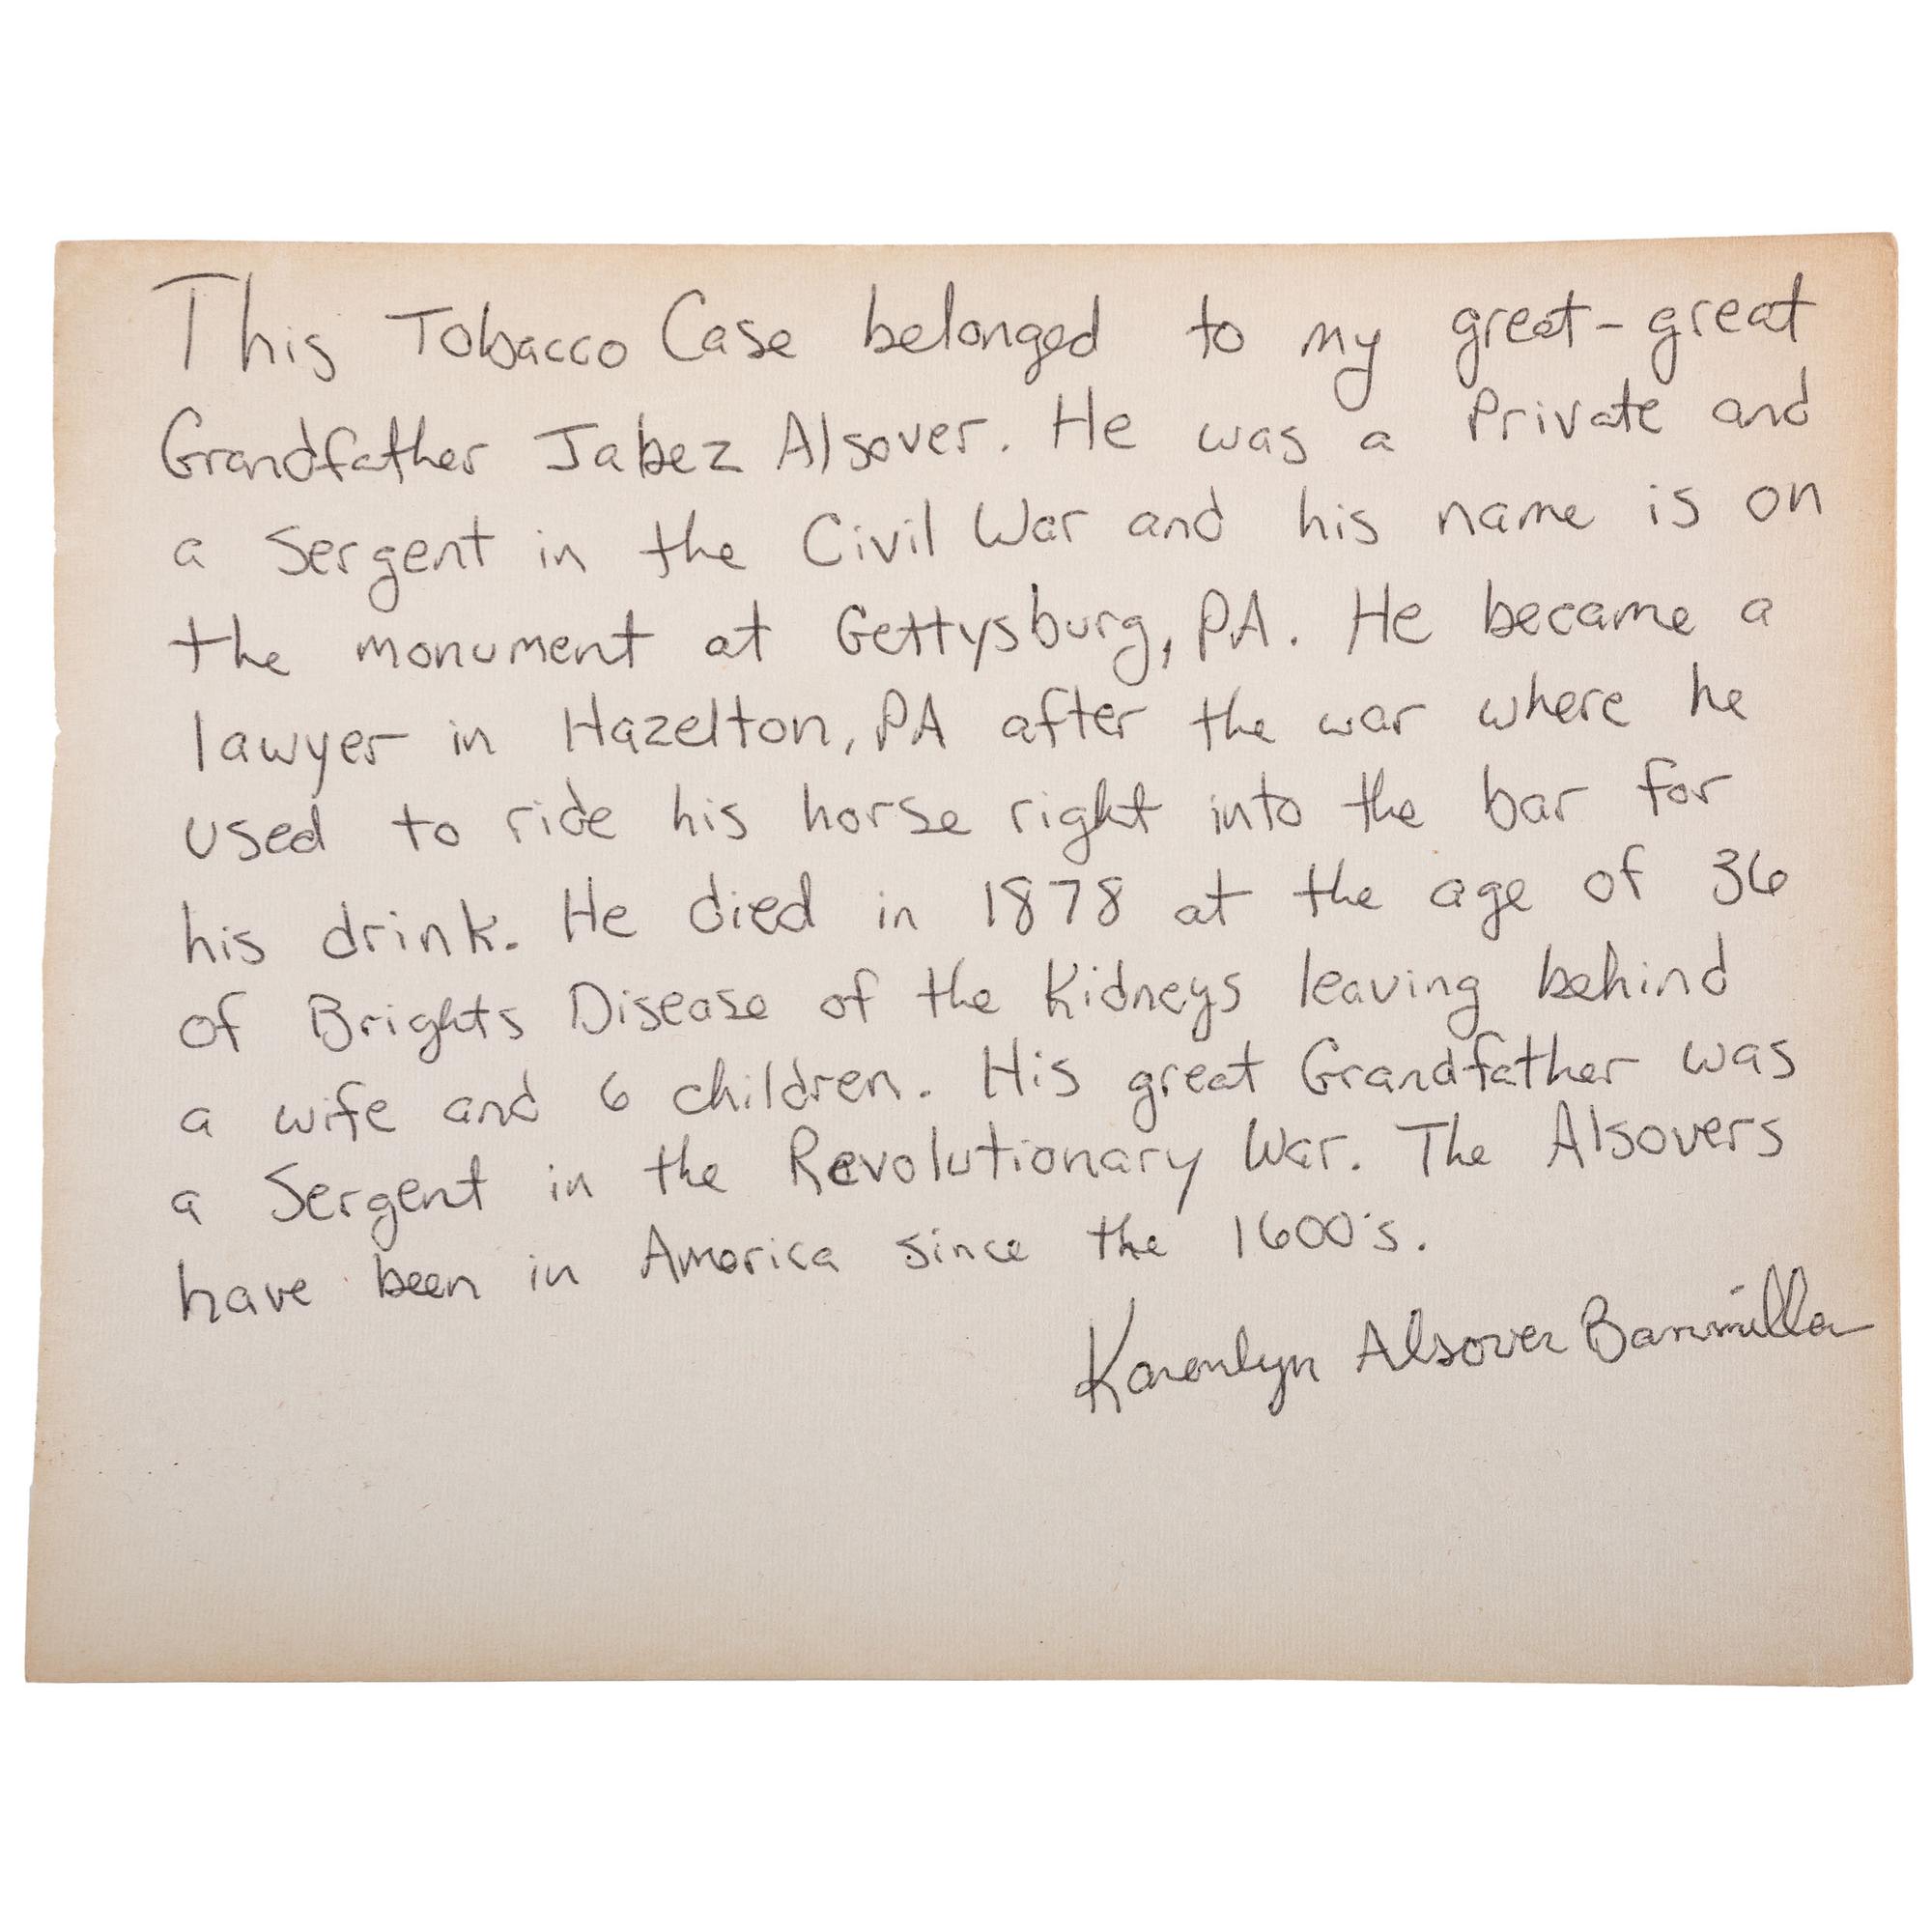 This Tobacco Case belonged to my great-great
Grandfather Jabez Alsover. He was a Private and
a Sergent in the Civil War and his name is on
the monument at Gettysburg, PA. He became a
lawyer in Hazelton, PA after the war where he
used to ride his horse right into the bar for
his drink. He died in 1878 at the age of 36
of Brights Disease of the Kidneys leaving behind
a wife and 6 children. His great Grandfather was
a Sergent in the Revolutionary War. The Alsovers
have been in America since the 1600's.
Karenlyn Alsover